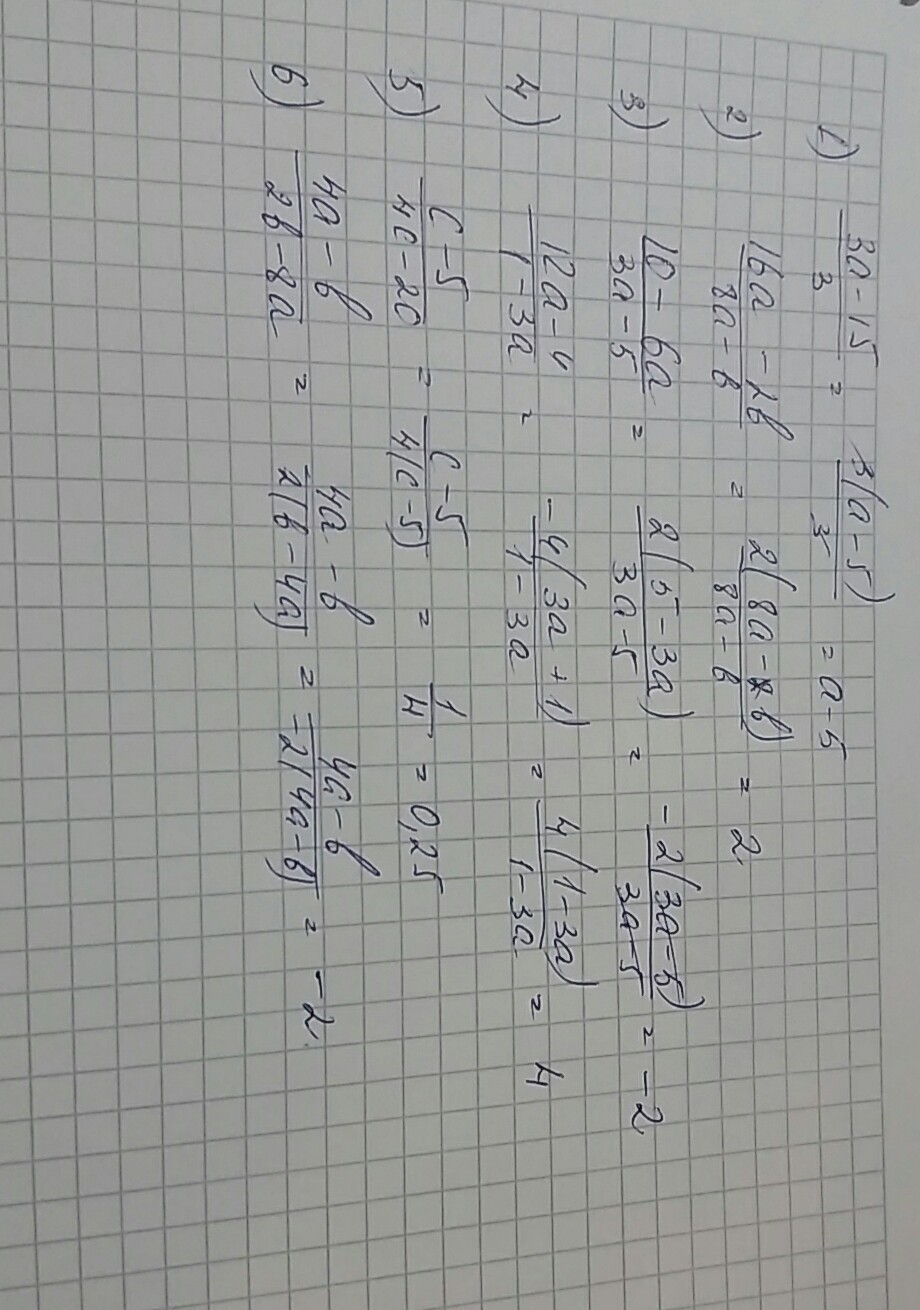 1) (3a-15)/3 = 3(a-5)/3 = a-5
2) (16a-2b)/(8a-b) = 2(8a-b)/(8a-b) = 2
3) (10-6a)/(3a-5) = 2(5-3a)/(3a-5) = -2(3a-5)/(3a-5) = -2
4) (12a-4)/(1-3a) = -4(3a+1)/(1-3a) = 4(1-3a)/(1-3a) = 4
5) (c-5)/(4c-20) = (c-5)/(4(c-5)) = 1/4 = 0,25
6) (4a-b)/(2b-8a) = (4a-b)/(2(b-4a)) = (4a-b)/(-2(4a-b)) = -2